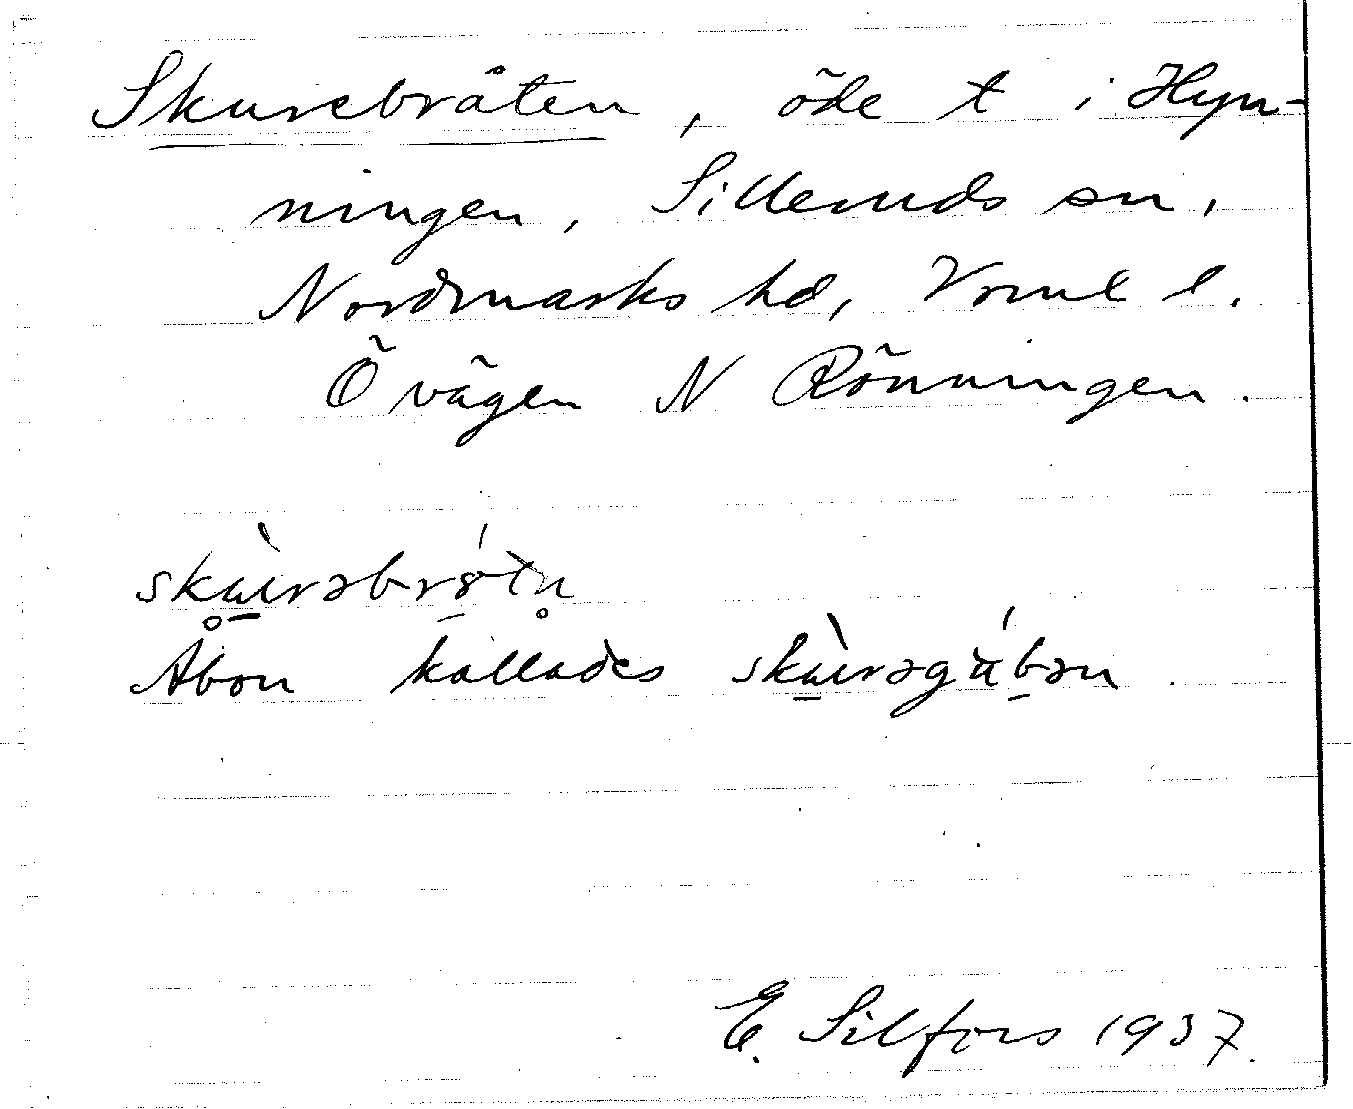 Skurebråten, öde t i Hyn-
ningen, Silleruds sn,
Nordmarks hd, Vrml l.
Ö vägen N Rönningen.
skùrəbrǿtn̥
Åbon kallades skùrəgúbən
E. Silfors 1937.